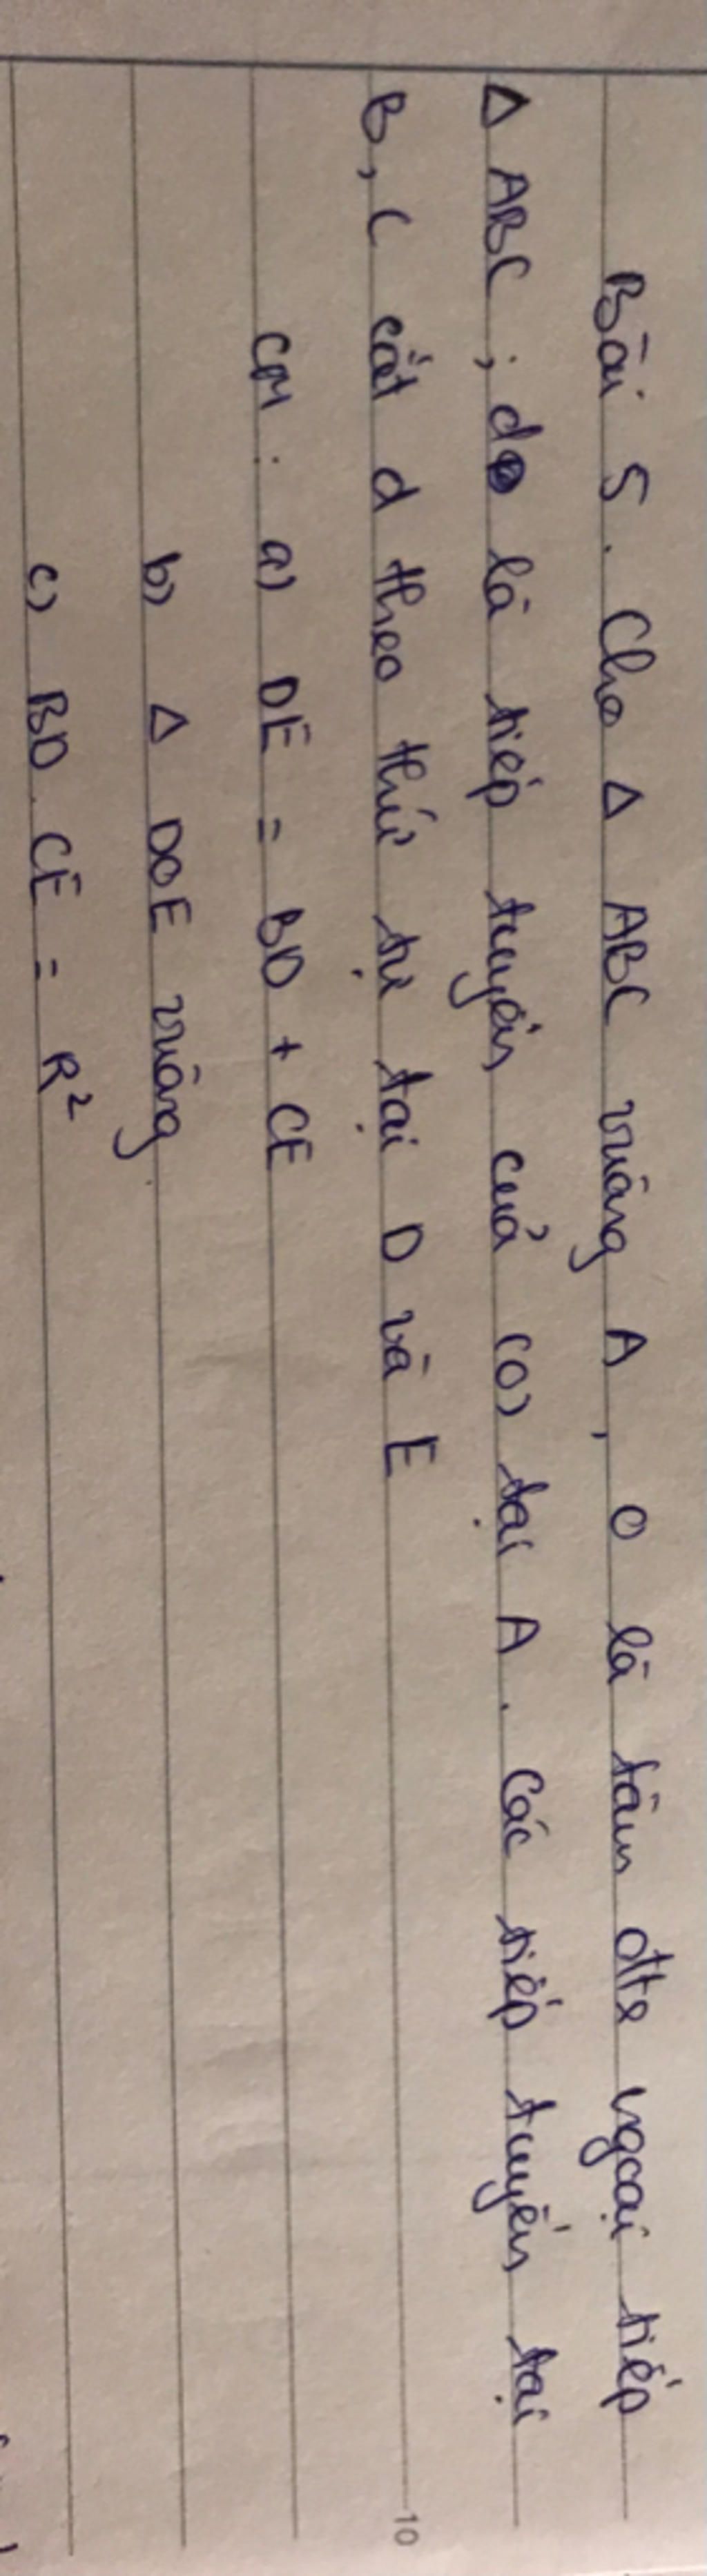 Bài 5. Cho Δ ABC vuông A, O là tâm đttr ngoại tiếp
Δ ABC ; d là tiếp tuyến của (O) tại A. Các tiếp tuyến tại
B, C cắt d theo thứ tự tại D và E
CM : a) DE = BD + CE
b) Δ DOE vuông.
c) BD. CE = R²
10